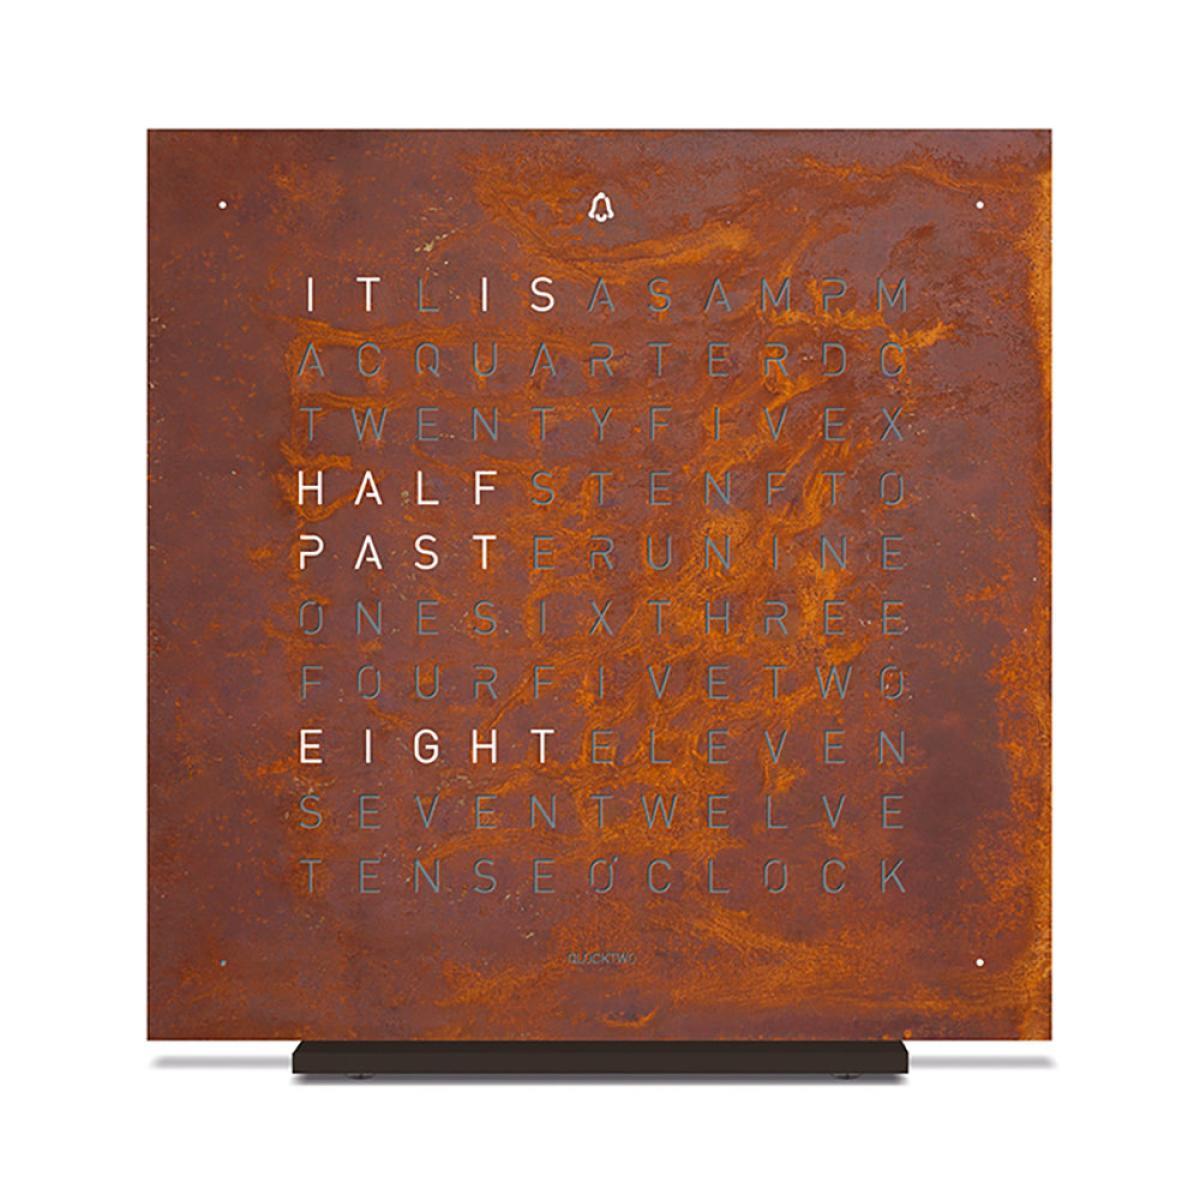 ITLISASAMPM
ACQUARTERDC
TWENTYFIVEX
HALFSTENFTO
PASTERUNINE
ONESIXTHREE
FOURFIVETWO
EIGHTELEVEN
SEVENTWELVE
TENSEO'CLOCK
QLOCKTWO